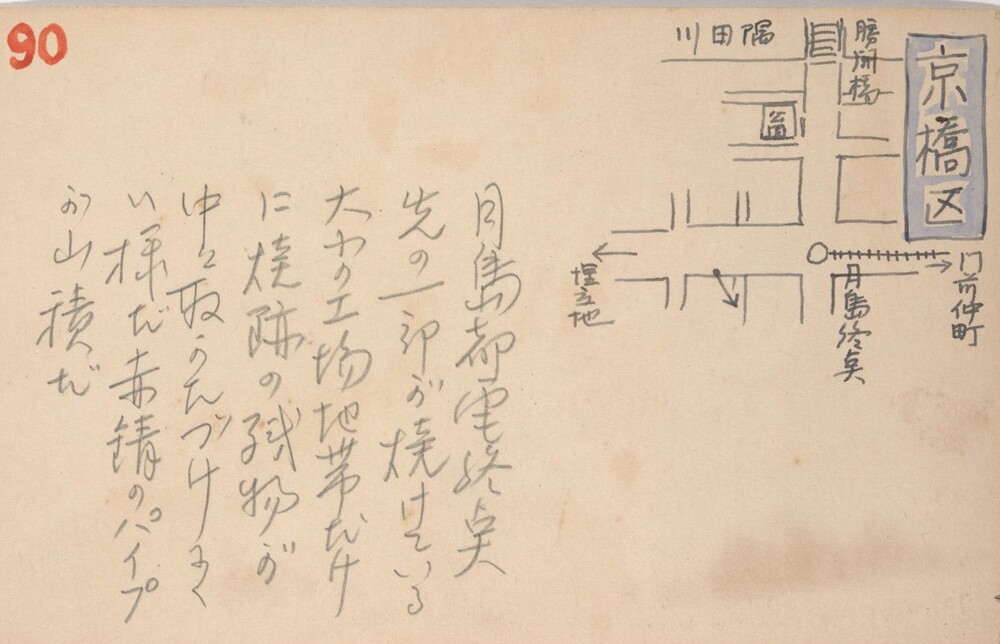 90
京橋区
勝開橋
川田隅
門前仲町
月島終点
埋立地
月島都電終点
先の一部が焼けている
大かの工場地帯だけ
に焼跡の残物が
中々取かたづけまく
い様だ赤錆のパイプ
が山積だ